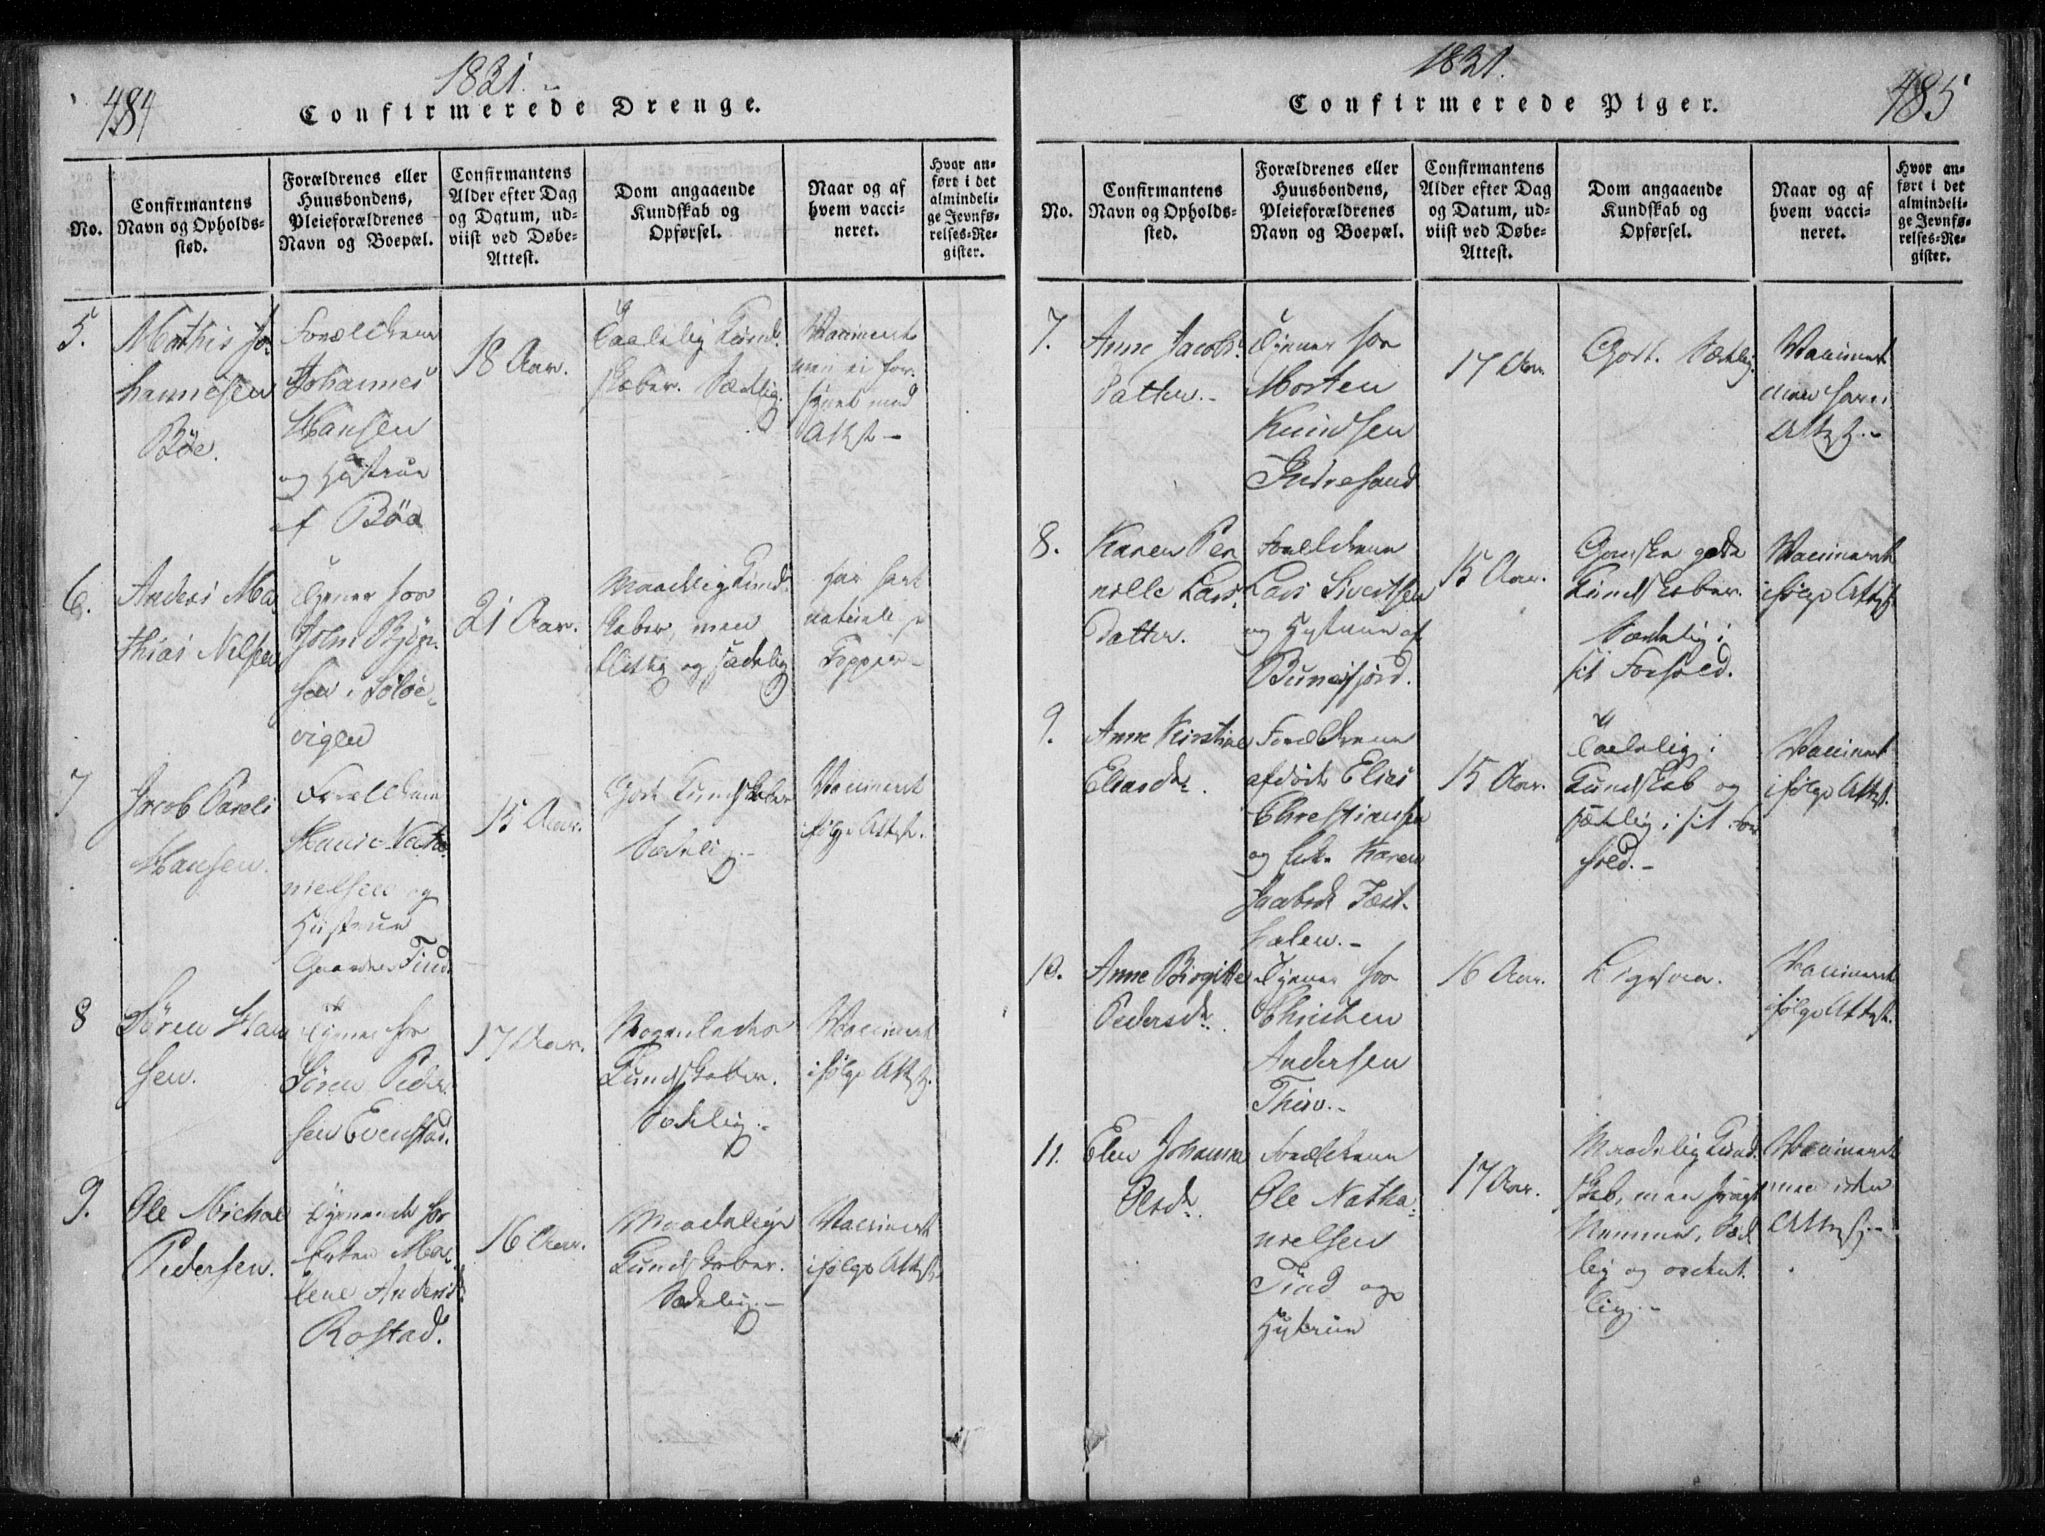 484
1821.
Confirmerede Drenge.
No.
Confirmantens
Navn og Opholds-
sted.
Forældrenes eller
Huusbondens,
Pleieforældrenes
Navn og Boepæl.
Confirmantens
Alder efter Dag
og Datum, ud-
viist ved Døbe-
Attest.
Dom angaaende
Kundskab og
Opførsel.
Naar og af
hvem vacci-
neret.
Hvor an-
ført i det
almindeli-
ge Jevnfø-
relses-Re-
gister.
5.
Mathis Jo-
hannesen
Böe.
Forældrene
Johannes
Hansen
og Hustrue
af Böe
18 Aar.
Taalelig Kund-
skaber. Sædelig.
Vaccineret
men ei for-
synet med
Attest
6.
Anders Ma
thias Nelsen
Tjener hos
John Björn-
sen i Solöe-
vigen
21 Aar.
Maadelig Kund-
skaber, men
flittig og sædelig
har havt
naturlige
Kopper
7
Jacob Pareli
Hansen.
Forældrene
Hans Natha-
nielsen og
Hustrue
Gaarden Tind
15 Aar.
Gode Kundskaber
Sædelig.
Vaccineret
ifølge Attest.
8
Sören Han
sen.
Tjener hos
Sören Peder-
sen Evenstad.
17 Aar.
Megen ladne
Kundskaber.
Sædelig.
Vaccineret
ifølge Attest.
9.
Ole Michael
Pedersen.
Tjenende hos
Enken Mar-
lene Andersd.
Rostad.
16 Aar.
Maadelige
Kundskaber.
Sædelig.
Vaccineret
ifølge Attest
1821.
485
Confirmerede Piger.
No.
Confirmantens
Navn og Opholds-
sted.
Forældrenes eller
Huusbondens,
Pleieforældrenes
Navn og Boepæl.
Confirmantens
Alder efter Dag
og Datum, ud-
viist ved Døbe-
Attest.
Dom angaaende
Kundskab og
Opførsel.
Naar og af
hvem vacci-
neret.
Hvor an-
ført i det
almindeli-
ge Jevnfø-
relses-Re-
gister.
7.
Anne Jacobs-
Datter.
Tjener hos
Morten
Knudsen
Indresand
17 Aar.
Godt. Sædelig.
Vaccineret
men
Attest.
8.
Karen Per
nille Lars-
datter.
Forældrene
Lars Sivertsen
og Hustrue af
Bunesfjord.
15 Aar.
Ganske gode
Kundskaber.
Sædelig i
sit Forhold.
Vaccineret
ifølge Attest.
9.
Anne Kirstine
Eliasdr.
Forældrene
afdöde Elias
Christiansen
og Enke Karen
Jacobsdr
15 Aar.
Taalelig i
Kundskab og
sædelig i sit For
hold.
Vaccineret
ifølge Attest.
10.
Anne Birgitte
Pedersdr.
Tjener hos
Christen
Andersen
16 Aar.
Ligesaa.
Vaccineret
ifølge Attest.
11.
Elen Johanna
Olesdr.
Forældrene
Ole Natha-
nielsen
Tind og
Hustrue
17 Aar.
Maadelig Kund-
skab, men svagt
Nemme. Sæd
lig og ordent-
lig.
Vaccineret
men uden
Attest.